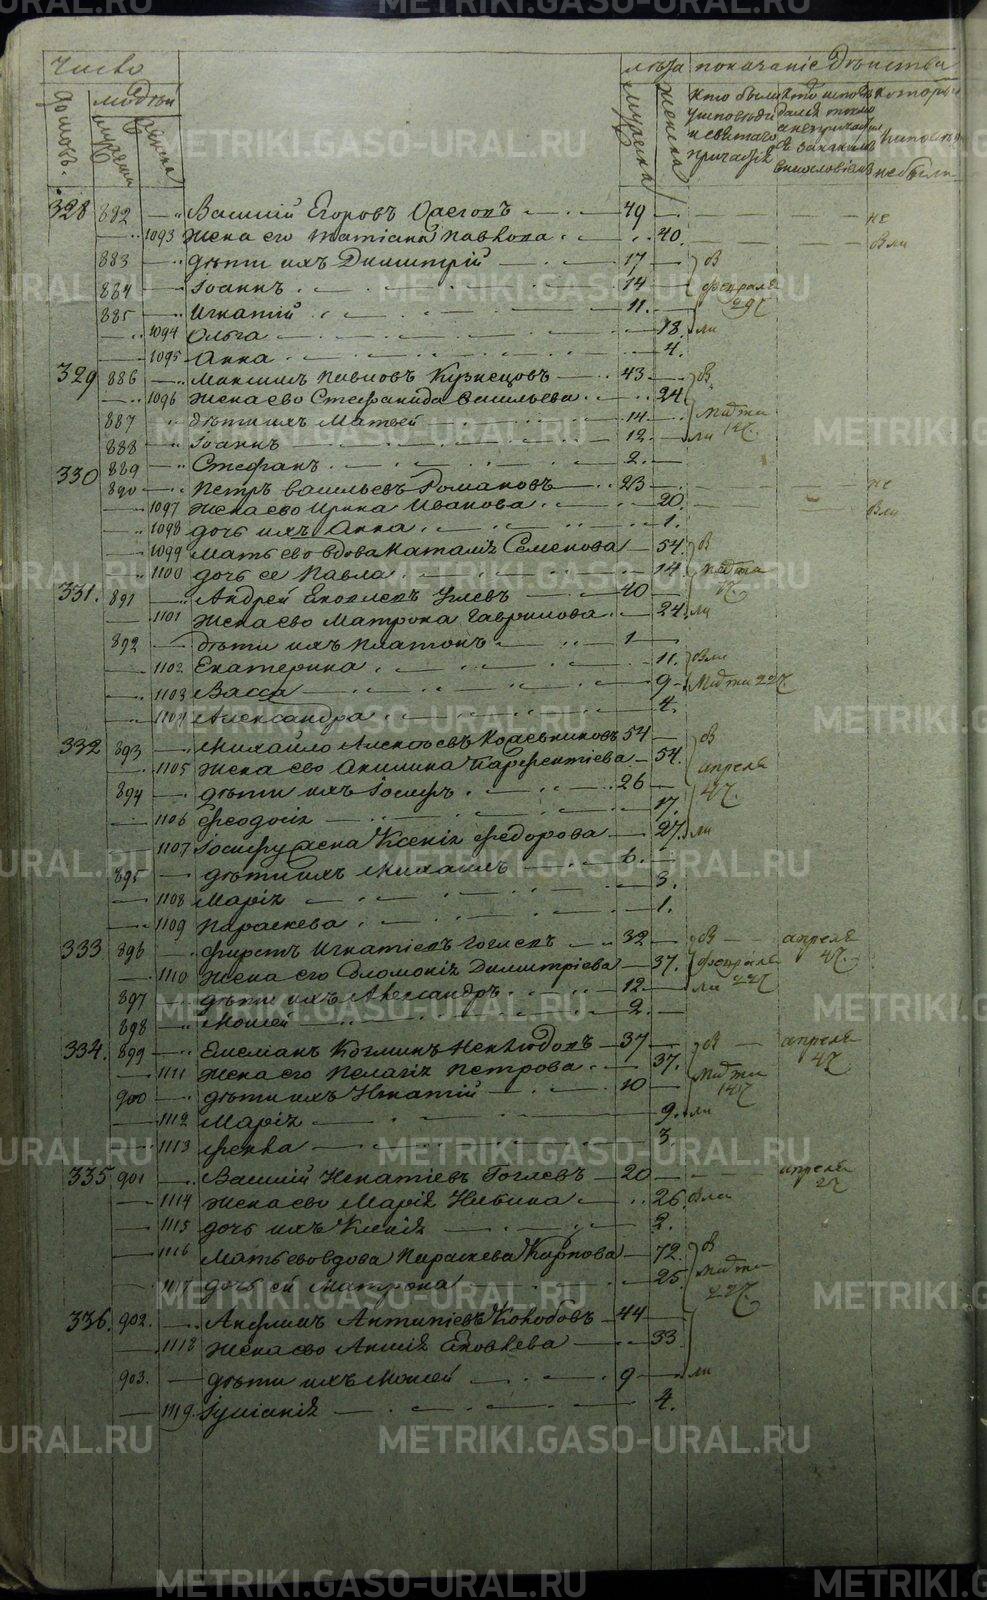 METRIKI.GASO-URAL.RU
число лѣта показаніе дѣиства
домовъ. людей
мужеска женска мужеска женска
кто были у исповѣди и святаго причастія
не были
328 882 Василій Егоровъ 49 не
1093 жена его Татіана Павлова 40. были
883 дѣти ихъ Димитрій 17 въ
884 Іоаннъ 14 февраля
885 Игнатій 11. 29
1094 Ольга 18. ли
1095 Анна 4.
329 886 Максимъ Павловъ Кузнецовъ 43 въ
1096 жена ево Стефанида Васильева 24
887 дѣти ихъ Матвей 14 марта
888 Іоаннъ 12 ли
889 Стефанъ 2.
330 890 Петръ Васильевъ Романовъ 23 не
1097 жена ево Ирина Иванова 20. были
1098 дочь ихъ Анна 1.
1099 Мать ево вдова Наталія Семенова 54. въ
1100 дочь ее Павла 14. марта
331. 891 Андрей 40
1101 жена ево Матрона Гаврилова 24. ли
892 дѣти ихъ Платонъ 1
1102. Екатерина 11. были
1103 Васса 9 марта 22
1104 Александра 4.
332 893 Михайло Алексѣевъ 54 въ
1105 жена ево Акилина Парфентіева 54. апреля
894 дѣти ихъ Іосифъ 26 4
1106 Феодосія 17.
1107 Іосифу жена Ксенія Федорова 27. ли
895 дѣти ихъ Михаилъ 6.
1108 Марія 3.
1109 Параскева 1.
333 896 Фирстъ Игнатіевъ Гоглевъ 32 въ апреля
1110 жена его Соломонія Димитріева 37. февраля 4
897 дѣти ихъ Александръ 12. ли 22
898 Моисей 2.
334. 899 Емеліанъ Козминъ Неклюдовъ 37 въ апреля
1111 жена его Пелагія Петрова 37. марта 4
900 дѣти ихъ Игнатій 10
1112 Марія 9. ли
1113 Фекла 3.
335 901 Василій Игнатіевъ Гоглевъ 20 апреля
1114 жена ево Марія 26 были 2
1115 дочь ихъ Ксенія 2.
1116 Мать ево вдова Параскева Карпова 72. въ
1117 дочь ей Матрона 25. марта
22
336. 902. Анфимъ Антипіевъ Колобовъ 44
1118 жена ево Анисія Яковлева 33
903. дѣти ихъ Моисей 9 ли
1119. Іуліанія 4.